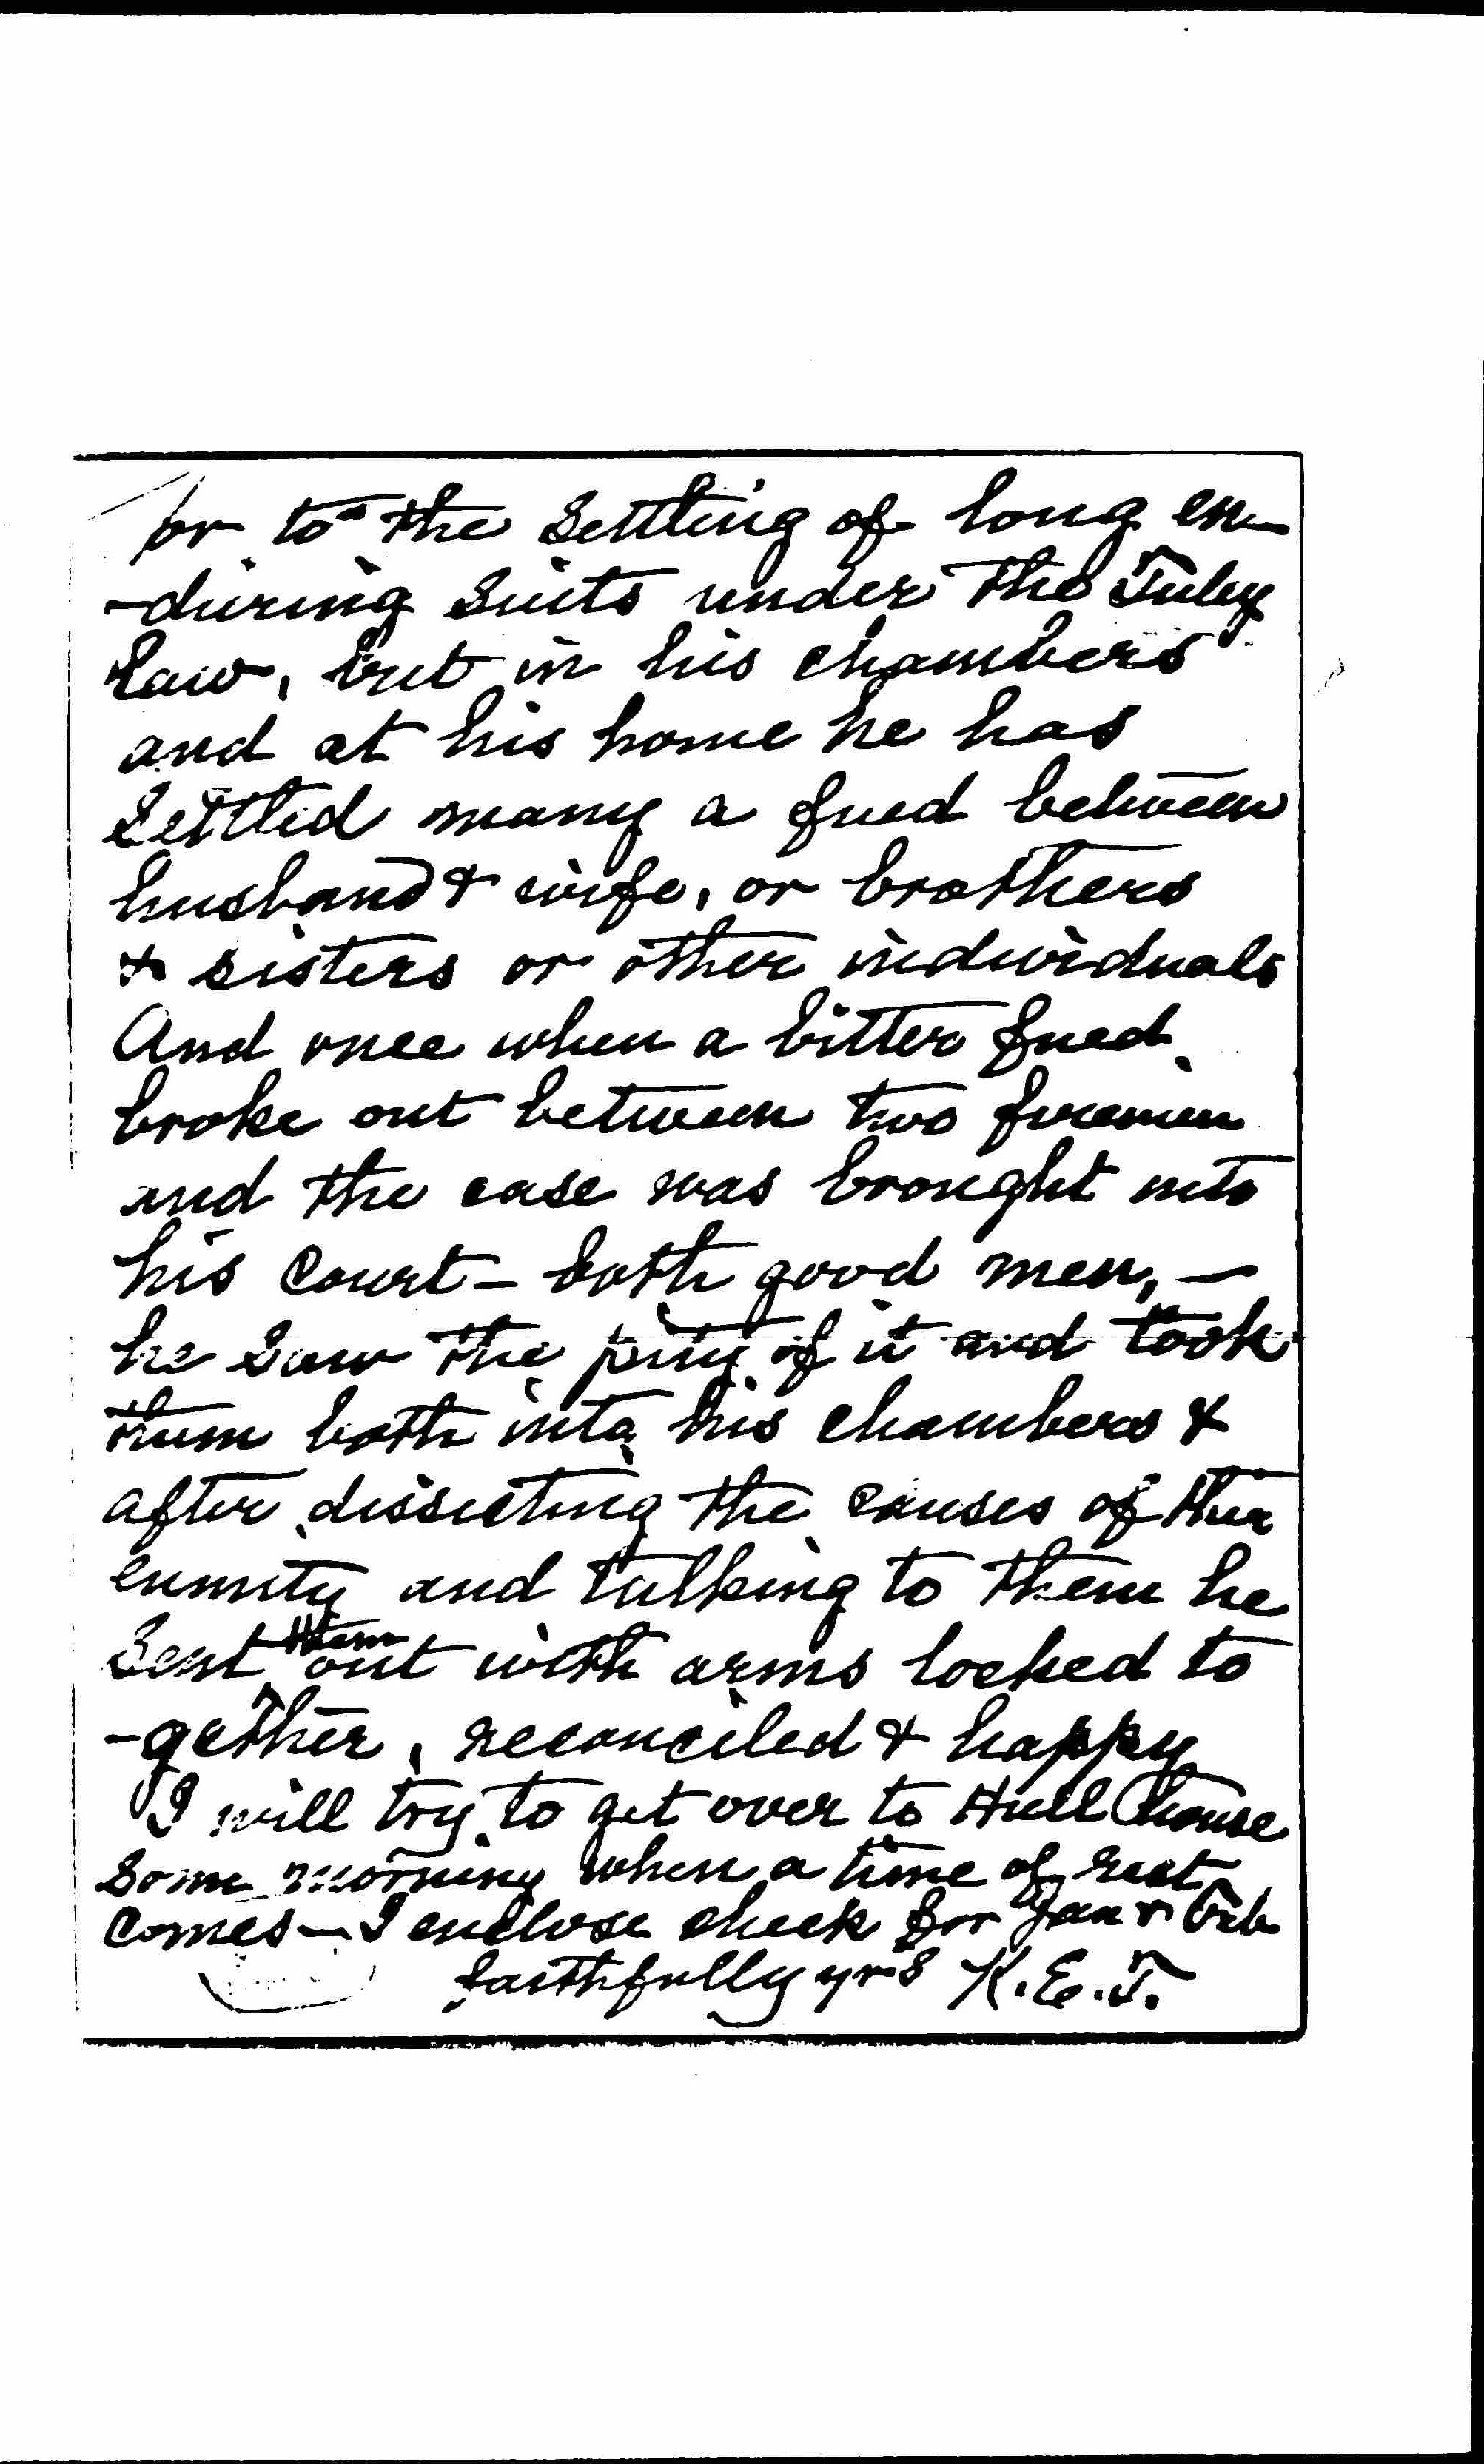 or to the settling of long en-
-during suits under the Tuley
Law, but in his chambers
and at his home he has
settled many a fued between
husband & wife, or brothers
& sisters or other individuals
And once when a bitter fued
broke out between two firemen
and the case was brought into
his Court - both good men, -
he saw the pity of it and took
them both into his chambers &
after dissecting the causes of their
enmity and talking to them he
sent them out with arms locked to
-gether, reconciled & happy
I will try to get over to Hull House
some morning when a time of rest
comes - I enclose check for Jan & Feb
faithfully yrs K. E. T.